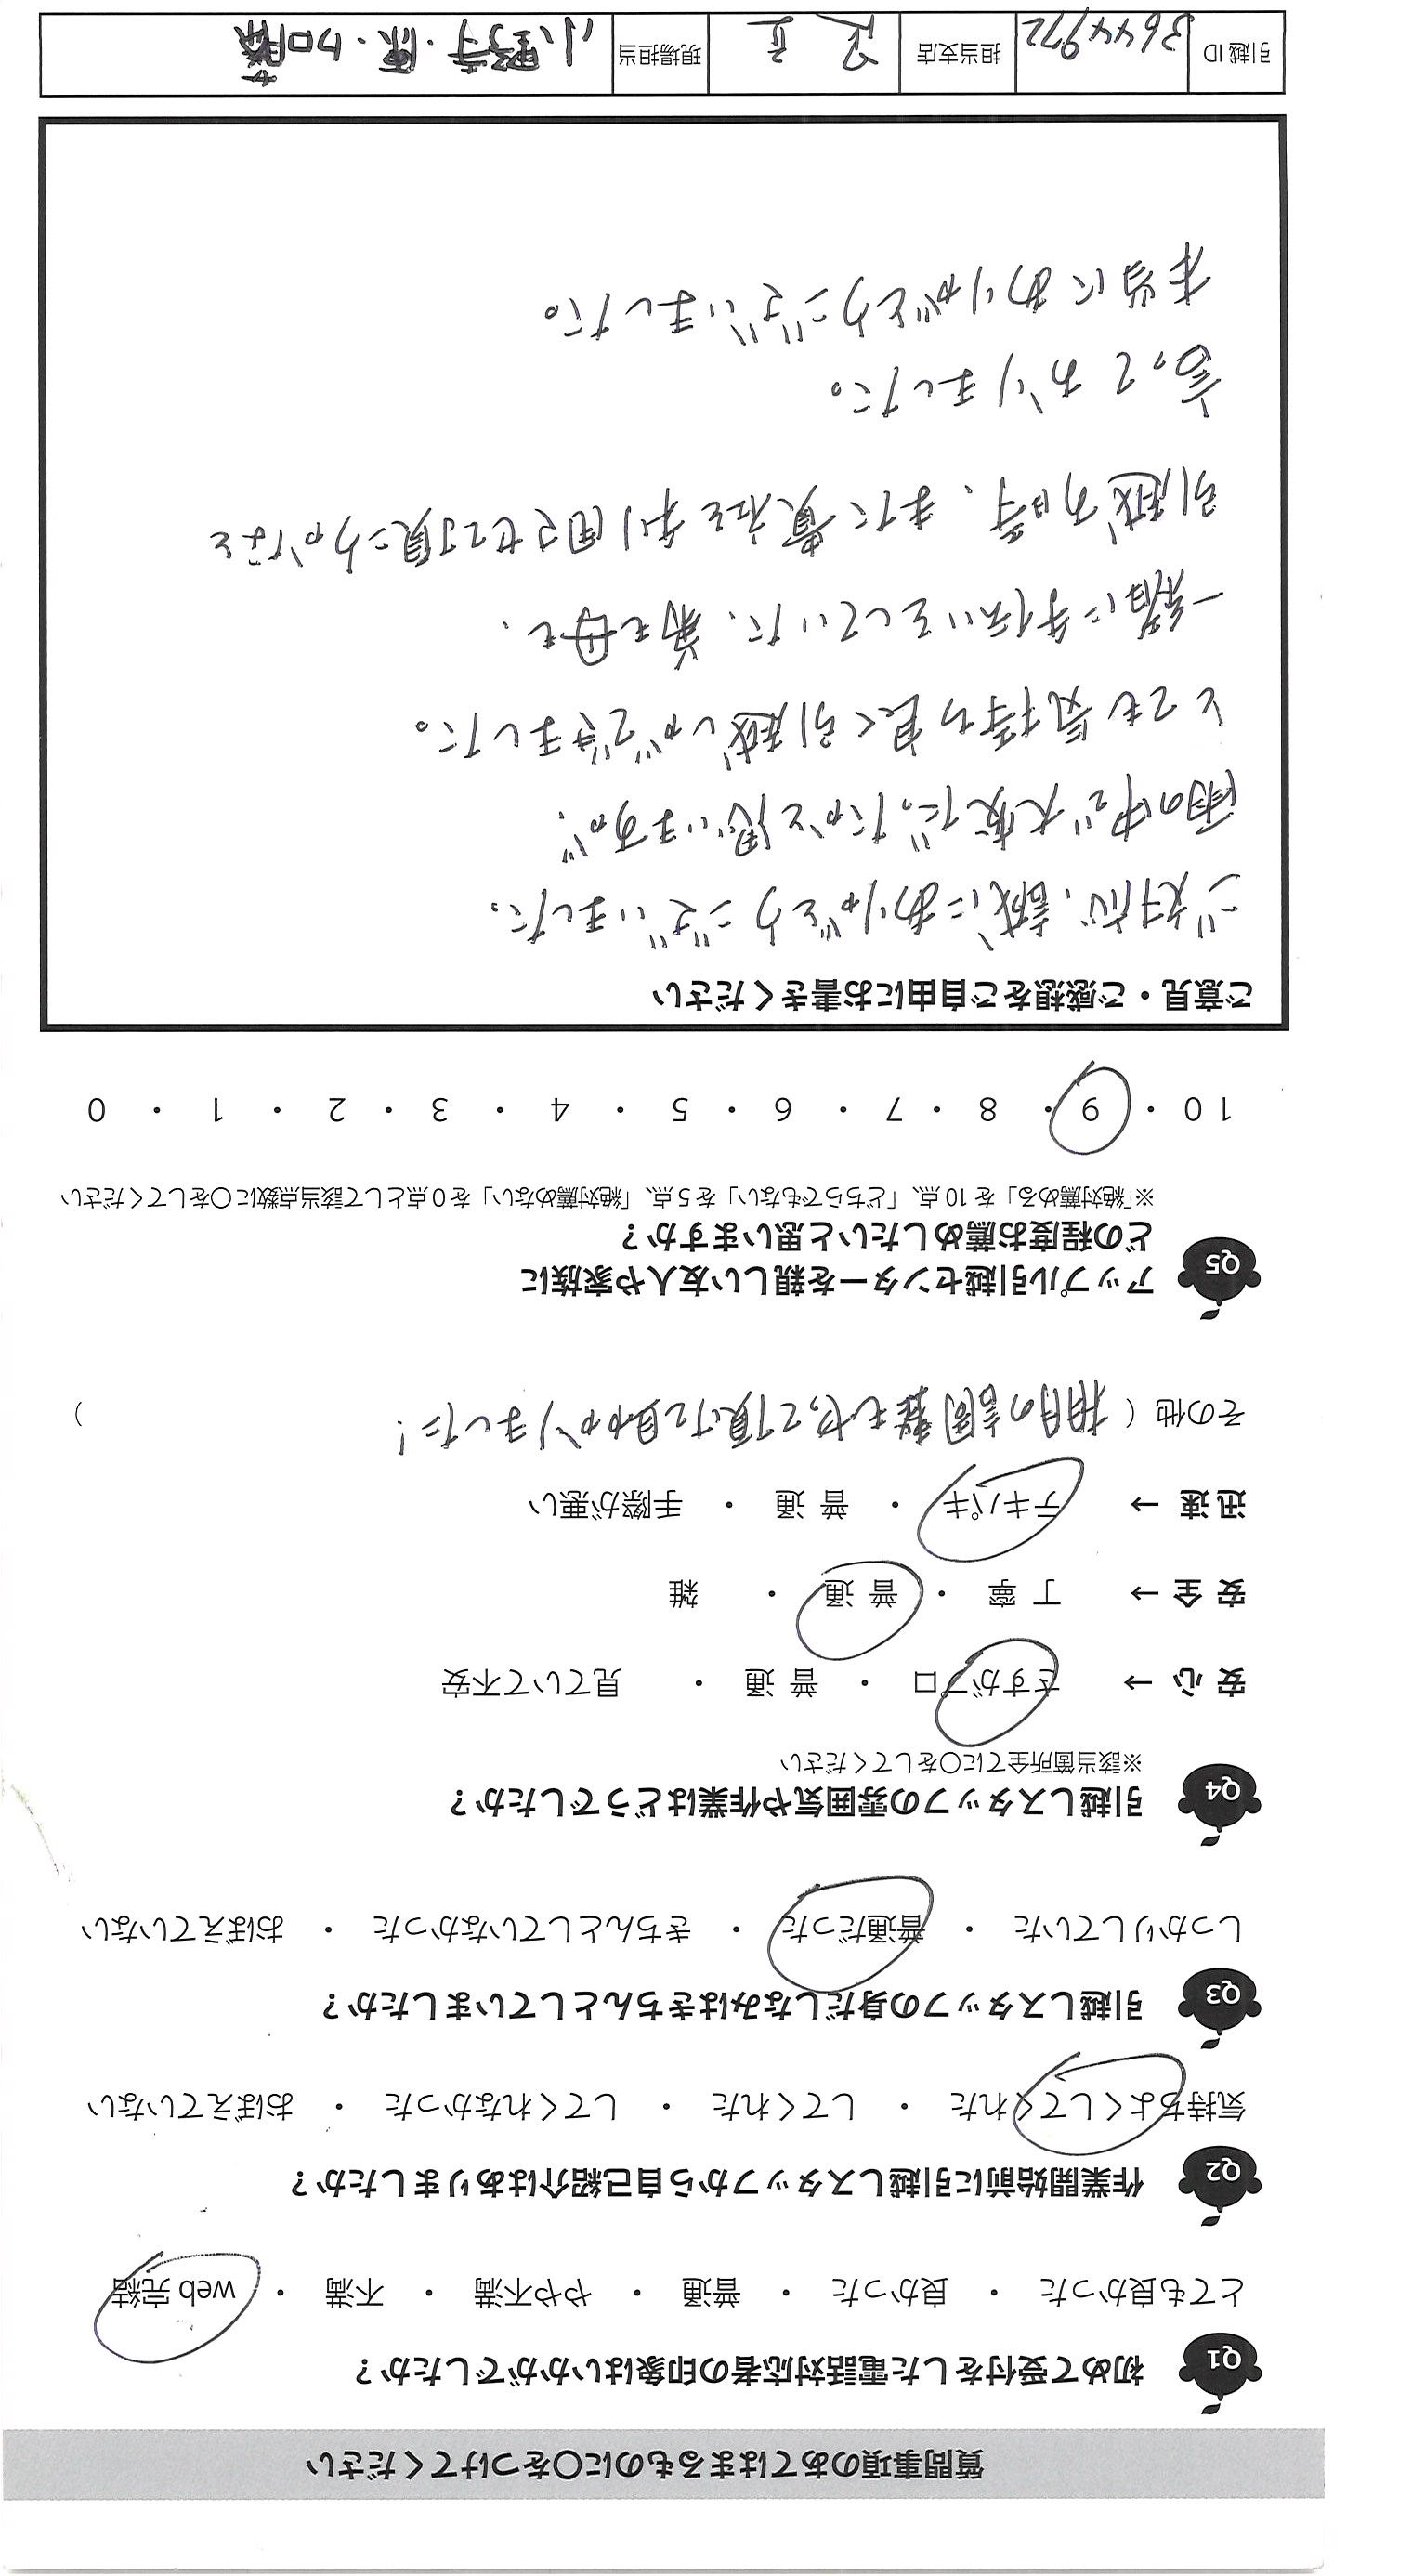 質問事項のあてはまるものに〇をつけてください
Q1 初めて受付をした電話対応者の印象はいかがでしたか？
とても良かった ・ 良かった ・ 普通 ・ やや不満 ・ 不満 ・ web 完結
Q2 作業開始前に引越しスタッフから自己紹介はありましたか？
気持ちよくしてくれた ・ してくれた ・ してくれなかった ・ おぼえていない
Q3 引越しスタッフの身だしなみはきちんとしていましたか？
しっかりしていた ・ 普通だった ・ きちんとしていなかった ・ おぼえていない
Q4 引越しスタッフの雰囲気や作業はどうでしたか？
※該当箇所全てに〇をしてください
安心 → さすがプロ ・ 普通 ・ 見ていて不安
安全 → 丁寧 ・ 普通 ・ 雑
迅速 → テキパキ ・ 普通 ・ 手際が悪い
その他 ( 棚の調整もやって頂けて助かりました! )
Q5 アップル引越センターを親しい友人や家族に
どの程度お薦めしたいと思いますか？
※「絶対薦める」を 10 点、「どちらでもない」を 5 点、「絶対薦めない」を 0 点として該当点数に〇をしてください
10 ・ 9 ・ 8 ・ 7 ・ 6 ・ 5 ・ 4 ・ 3 ・ 2 ・ 1 ・ 0
ご意見・ご感想をご自由にお書きください
ご対応、誠にありがとうございました。
雨の中で大変だったかと思いますが、
とても気持ち良く引越しができました。
一緒に手伝いをしていた、弟も母も、
引越す時、また貴社を利用させて頂こうかなと
言っておりました。
本当にありがとうございました。
引越 ID 3644972 担当支店 現場担当 小野寺・原・加藤